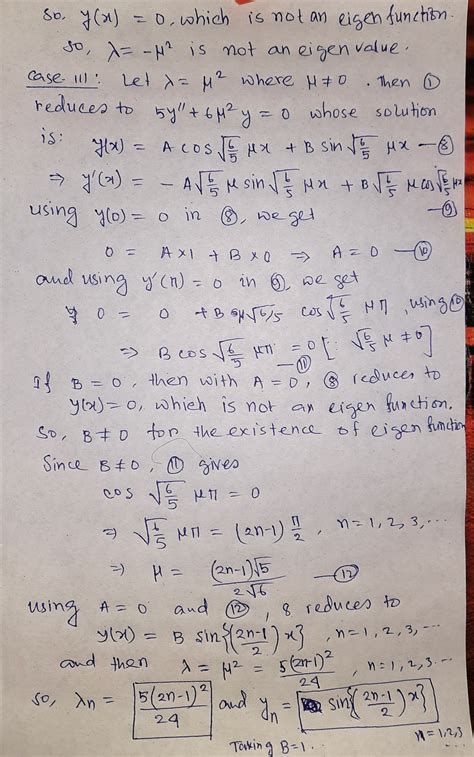 So, y(x) = 0, which is not an eigen function.
So, λ = -μ² is not an eigen value.
Case-III: Let λ = μ² where μ≠0. Then ①
reduces to 5y'' + 6μ²y = 0 whose solution
is: y(x) = A cos √(6/5) μx + B sin √(6/5) μx —⑧
⇒ y'(x) = - A√(6/5) μ sin √(6/5) μx + B√(6/5) μ cos √(6/5) μx
—⑨
using y(0) = 0 in ⑧, we get
0 = A×1 + B×0 ⇒ A = 0 —⑩
and using y'(π) = 0 in ⑨, we get
0 = 0 + B μ√6/5 cos √(6/5) μπ, using ⑩
⇒ B cos √(6/5) μπ = 0 [∵ √(6/5) μ ≠ 0]
—⑪
If B = 0, then with A = 0, ⑧ reduces to
y(x) = 0, which is not an eigen function.
So, B≠0 for the existence of eigen function
Since B≠0, ⑪ gives
cos √(6/5) μπ = 0
⇒ √(6/5) μπ = (2n-1) π/2, n = 1, 2, 3, ...
⇒ μ = (2n-1)√5 / 2√6 —⑫
using A = 0 and ⑫, 8 reduces to
y(x) = B sin{(2n-1/2) x}, n = 1, 2, 3, ...
and then λ = μ² = 5(2n-1)²/24, n = 1, 2, 3...
So, λn = 5(2n-1)²/24 and yn = sin{(2n-1/2) x}
Taking B=1. n = 1,2,3